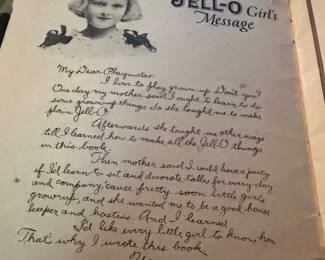 JELL-O Girl's
Message
My Dear Playmates:
I love to play grown up. Don't you?
One day my mother said I ought to learn to do
some grownup things. So she taught me to make
plain Jell-O.
Afterwards she taught me other ways
till I learned how to make all the Jell-O things
in this book.
Then mother said I could have a party
if I'd learn to set and decorate tables for every-day
and company, 'cause pretty soon little girls
grow up, and she wanted me to be a good house
keeper and hostess. And I learned.
I'd like every little girl to know how
That's why I wrote this book.